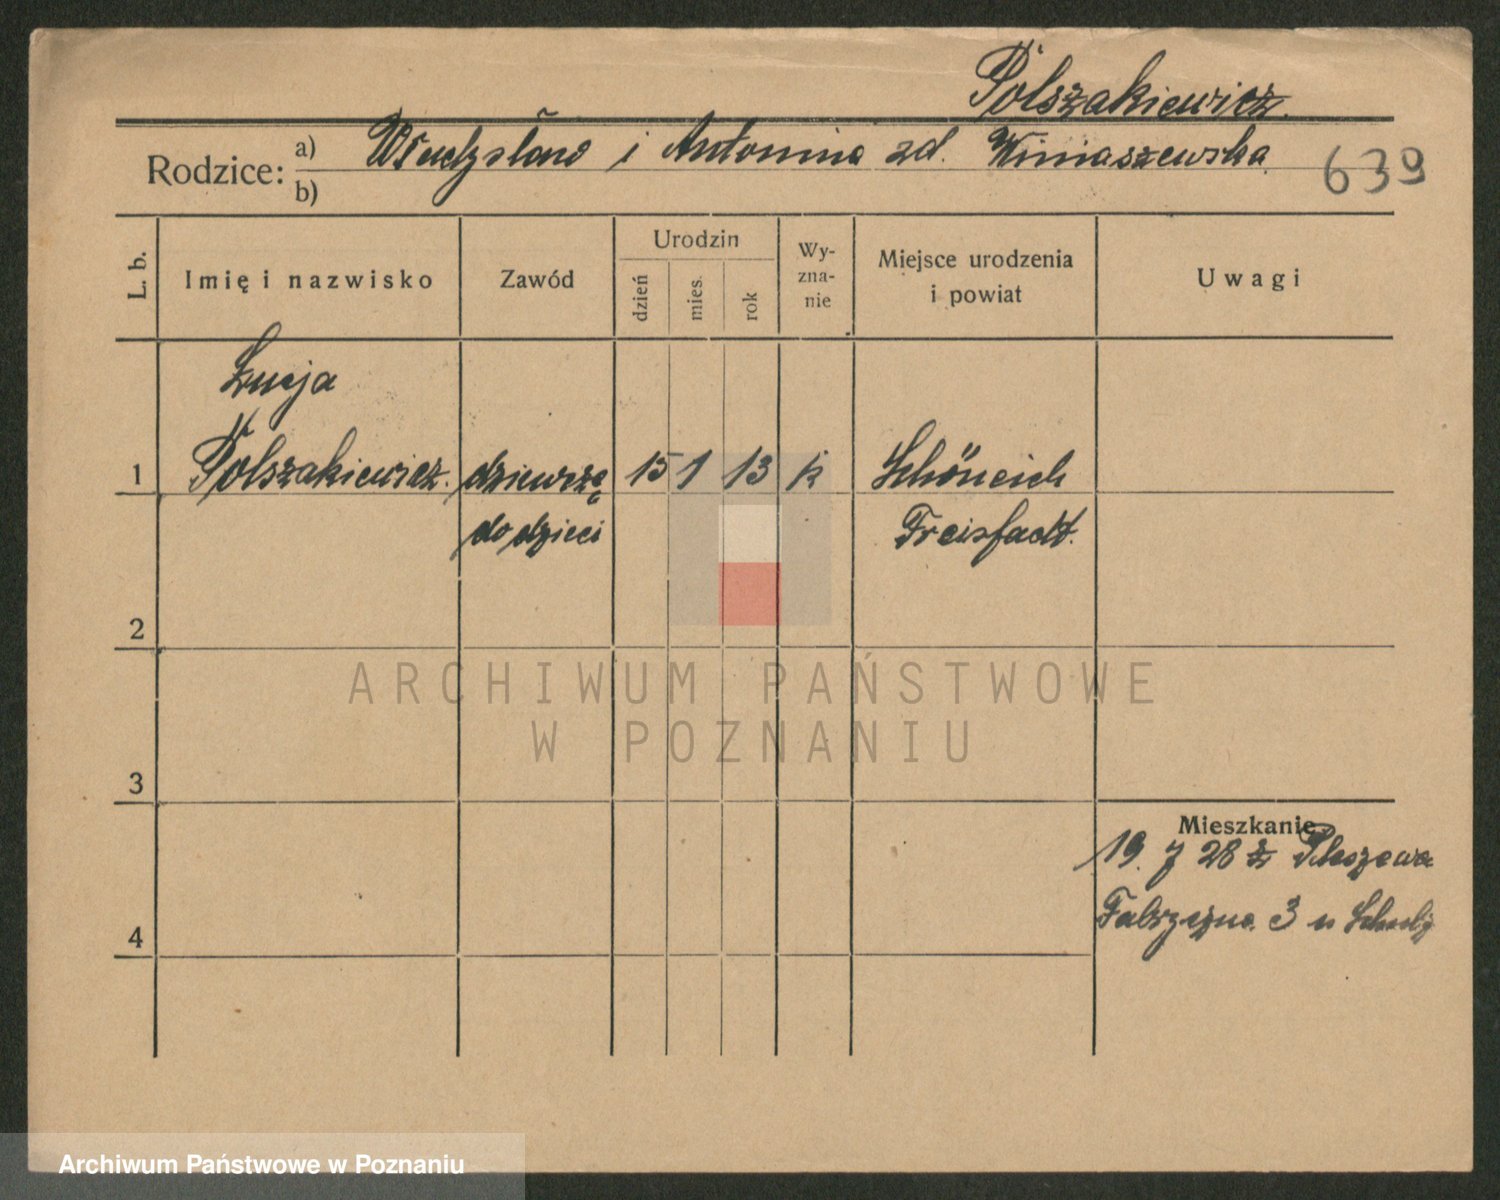 Polszakiewicz.
Rodzice: a) Władysław i Antonina zd. Winiaszewska
b)
639
L. b.
Imię i nazwisko
Zawód
Urodzin
dzień
mies.
rok
Wy-
zna-
nie
Miejsce urodzenia
i powiat
Uwagi
Łucja
1 Polszakiewicz. dziewczę 15 1 13 k Schöneich
do dzieci Freistadt.
2
3
4
Mieszkanie
19. 7 28 z Pleszewa
3 u
ARCHIWUM PAŃSTWOWE
W POZNANIU
Archiwum Państwowe w Poznaniu